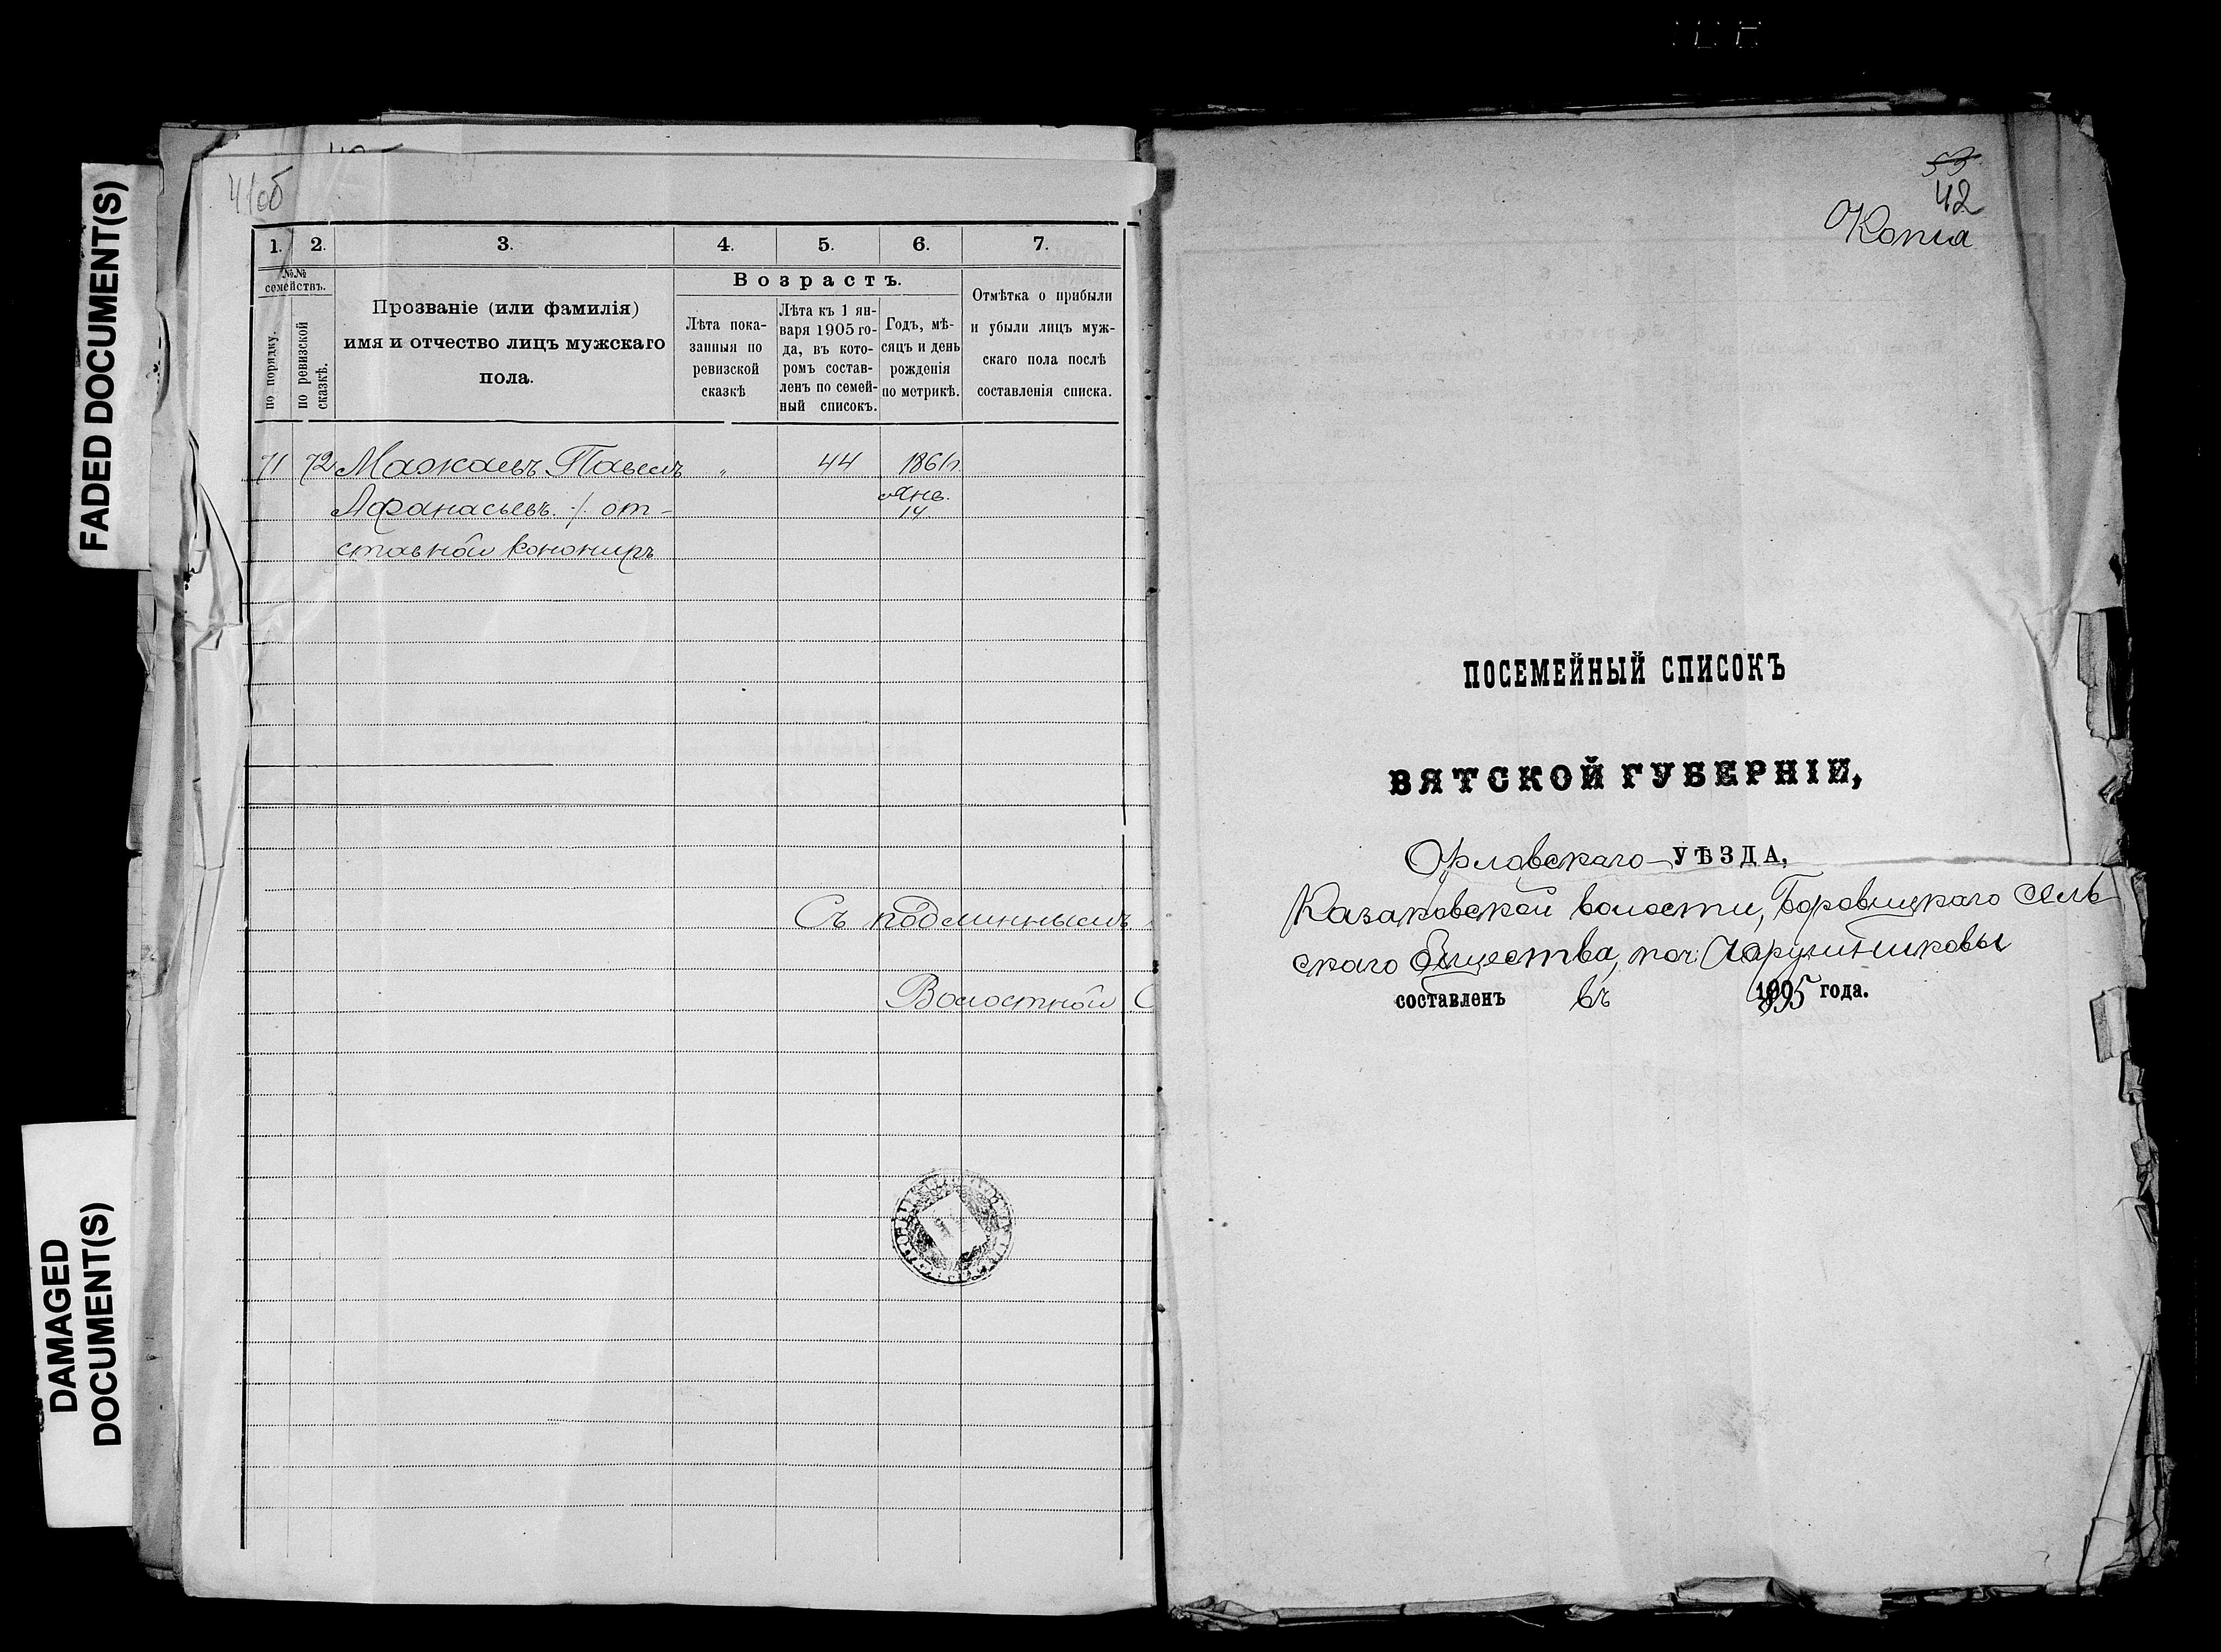 FADED DOCUMENT(S)
DAMAGED
DOCUMENT(S)
41об
1. 2. 3. 4. 5. 6. 7.
№№
семействъ.
по порядку.
по ревизской
сказкѣ.
Прозваніе (или фамилія)
имя и отчество лицъ мужскаго
пола.
Возрастъ.
Лѣта пока-
занныя по
ревизской
сказкѣ
Лѣта къ 1 ян-
варя 1905 го-
да, въ кото-
ромъ состав-
ленъ по семей-
ный списокъ.
Годъ, мѣ-
сяцъ и день
рожденія
по метрикѣ.
Отмѣтка о прибыли
и убыли лицъ муж-
скаго пола послѣ
составленія списка.
71 72 Павелъ „ 44 1861г.
Афанасьевъ ./. от- Янв.
ставной канониръ 14.
Съ подлиннымъ
Волостной С
53
42
Копія
ПОСЕМЕЙНЫЙ СПИСОКЪ
ВЯТСКОЙ ГУБЕРНІИ,
Орловскаго УѢЗДА,
Казаковской волости, Боровицкаго сель
скаго общества, поч.
составленъ въ года.